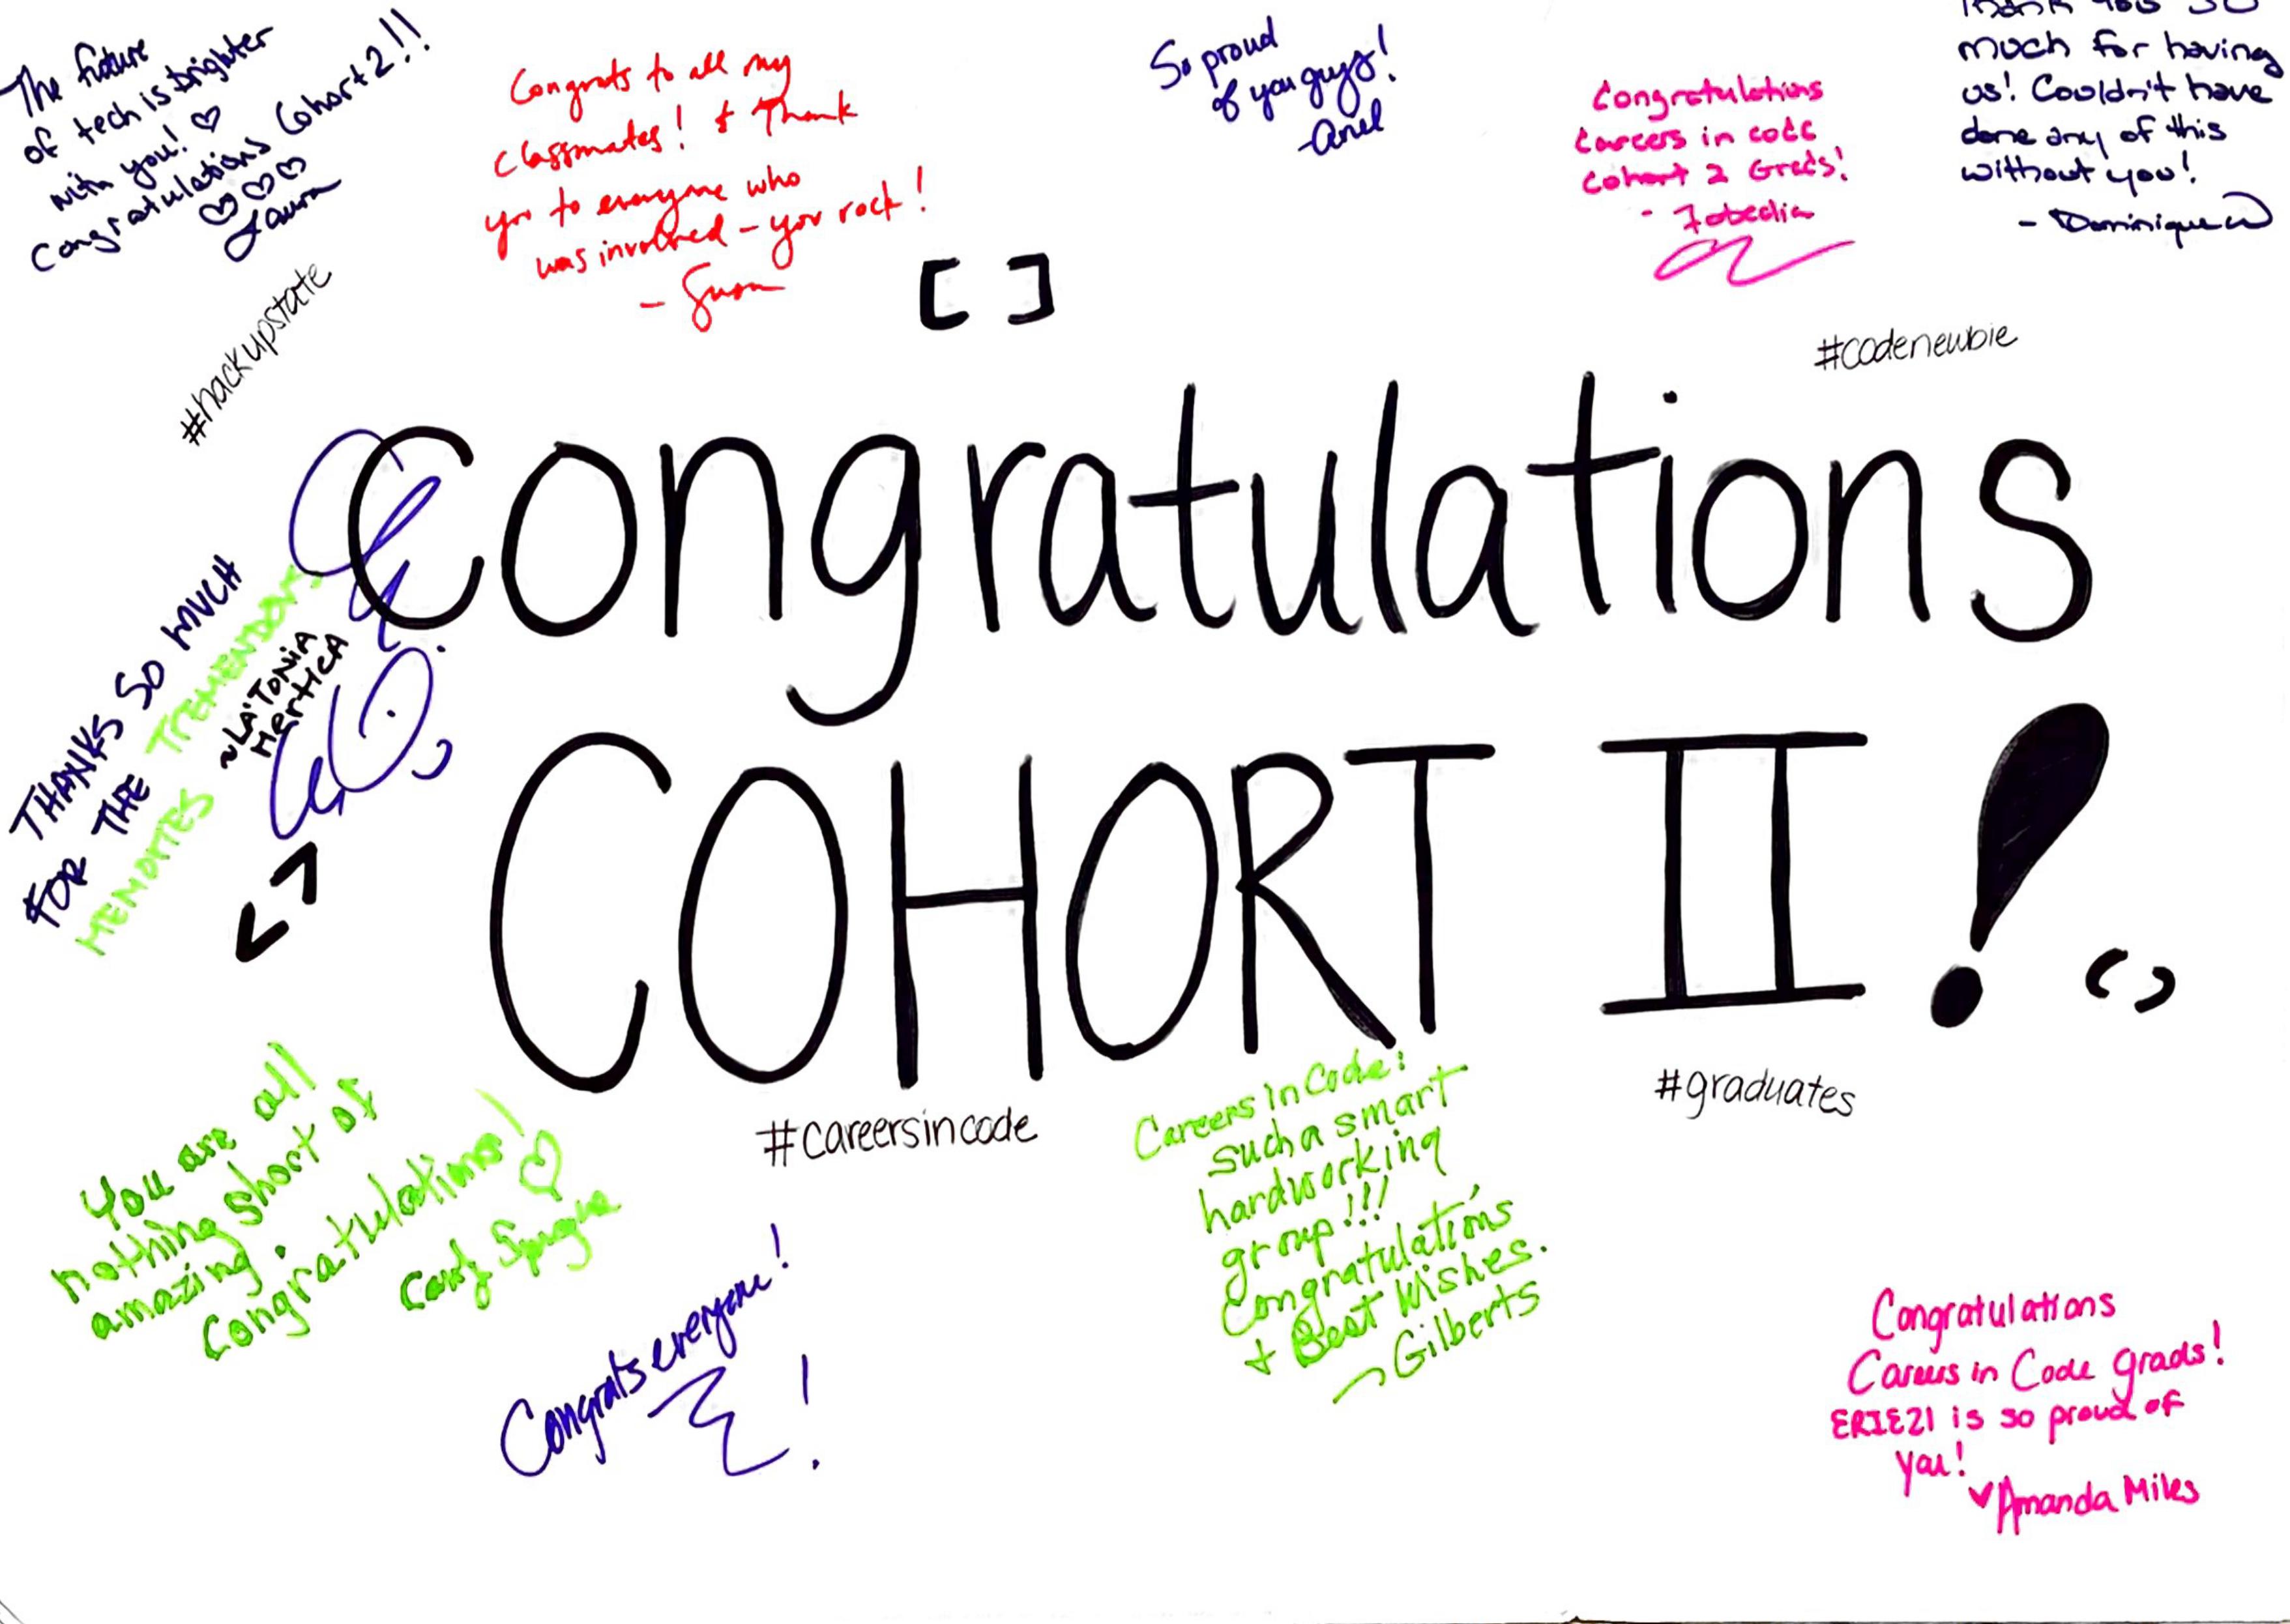 The future
of tech is brighter
with you! ♡
Congratulations Cohort 2!!
♡♡♡
Laura
#hackupstate
Congrats to all my
classmates! & Thank
you to everyone who
was involved - you rock!
- Susan
[ ]
So proud
of you guys!
-Ariel
Congratulations
Careers in code
Cohort 2 Grads!
Thank You So
much for having
us! Couldn't have
done any of this
without you!
- Dominique W
#codenewbie
Congratulations
COHORT II!
THANKS SO MUCH
FOR THE TREMENDOUS
MEMORIES
~LA'TONIA
MERTICA
< >
( )
#careersincode
#graduates
You are all
nothing short of
amazing.
Congratulations! ♡
Congrats everyone!
!
Careers in Code:
such a smart
hardworking
group!!!
Congratulations
+ Best Wishes.
~Gilberts
Congratulations
Careers in Code grads!
ERIE21 is so proud of
you!
♥Amanda Miles